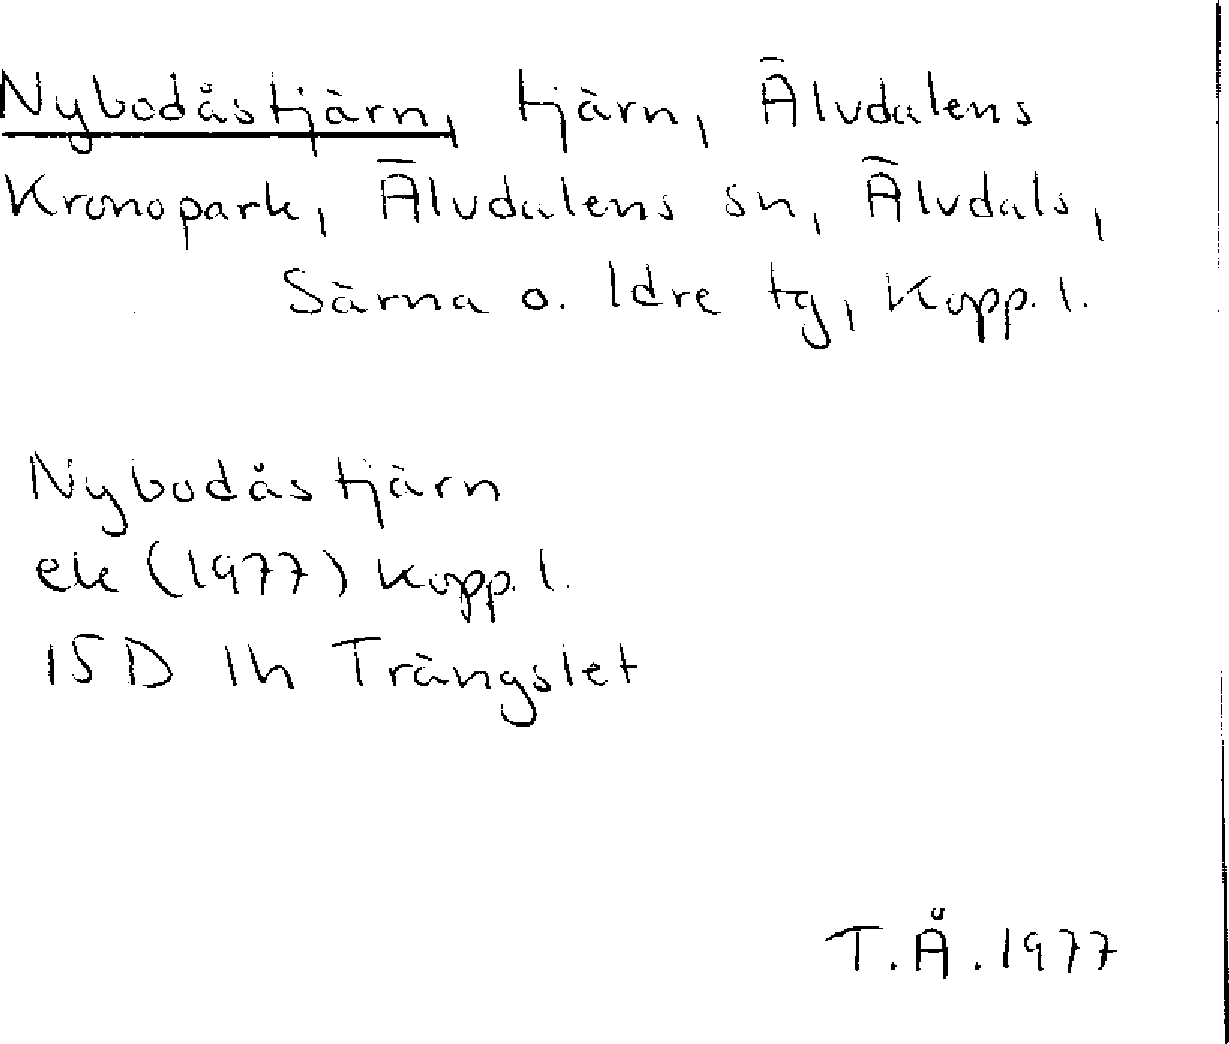 Nybodåstjärn, tjärn, Älvdalens
Kronopark, Älvdalens sn, Älvdals,
Särna o. Idre tg, Kopp. l.
Nybodåstjärn
ek (1977) Kopp. l.
15D 1h Trängslet
T.Å. 1977